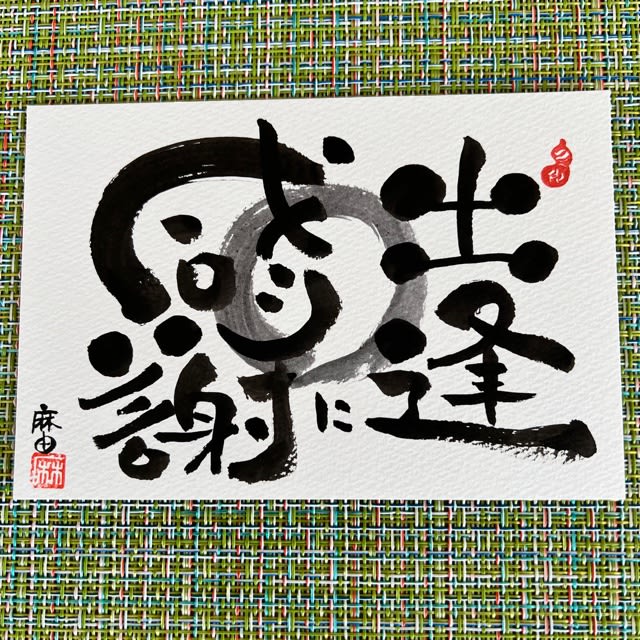 出逢に
感謝
麻由